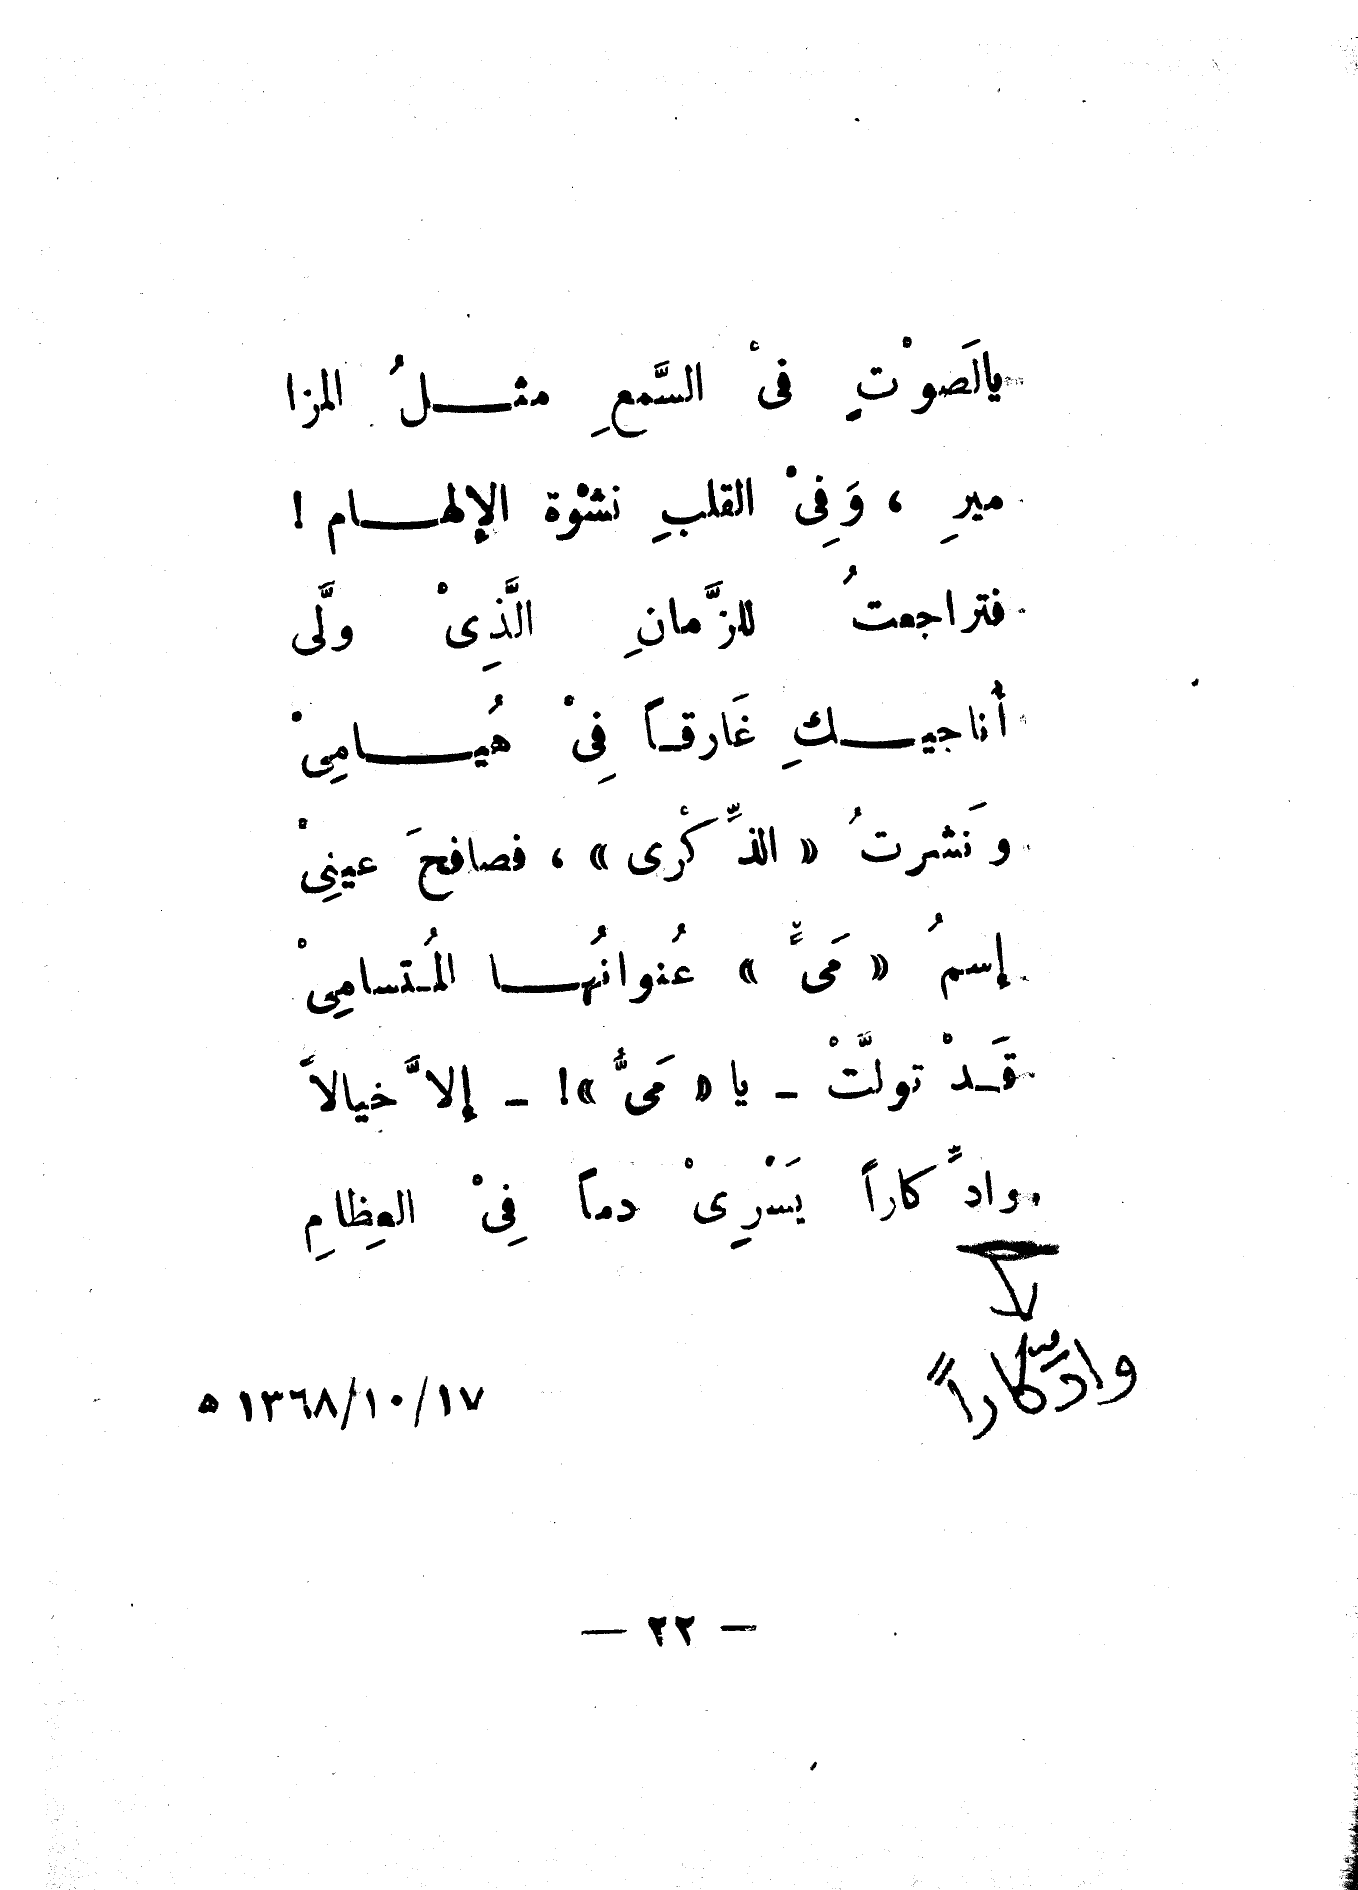 يالَصوْتٍ فىْ السَّمعِ مثــلُ المزا
ميرِ ، وَفِىْ القلبِ نشْوَة الإلهــام !
فتراجعتُ للزَّمانِ الَّذِىْ ولَّى
أناجيــكِ غَارقـاً فِىْ هُيــامِىْ
وَنشرتُ « الذِّكْرى » ، فصافحَ عينِىْ
إسمُ « مَىٍّ » عُنوانُهــا المُـتسامِىْ
قَـدْ تولَّتْ ـ يا « مَىُّ »! ـ إلاَّ خيالاً
وادِّكاراً يَسْرِىْ دماً فِىْ العِظامِ
وادِّكاراً
١٣٦٨/١٠/١٧ ه
— ٢٢ —